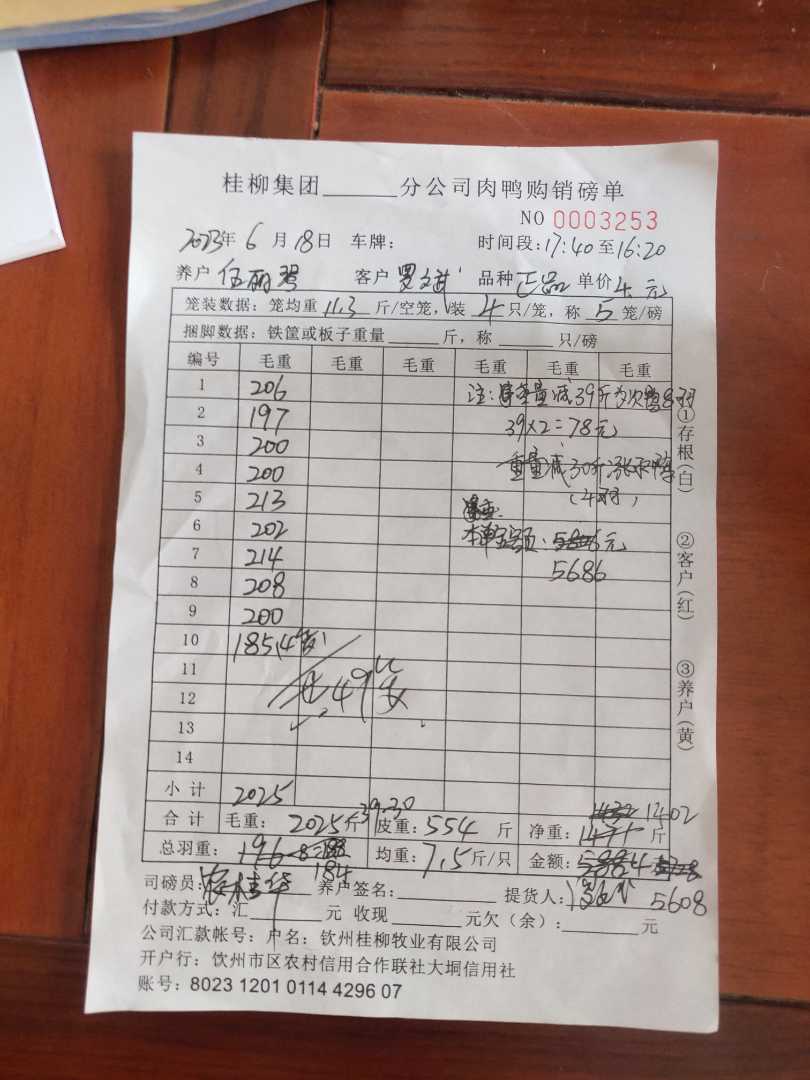 桂柳集团______分公司肉鸭购销磅单
NO 0003253
2023年 6 月 18日 车牌: 时间段:17:40 至16:20
养户 伍丽琴 客户 罗文武 品种 正品 单价 4 元
笼装数据: 笼均重 11.3 斤/空笼, 装 4 只/笼, 称 5 笼/磅
捆脚数据: 铁筐或板子重量______斤, 称______只/磅
编号 毛重 毛重 毛重 毛重 毛重 毛重
1 206 注: 重量减39斤为次鸭8只
2 197 39×2=78元
3 200
4 200 重量减30斤
5 213
6 202 本单金额: 5806元
7 214 5686
8 208
9 200
10 185(4笼)
11
12 共49笼
13
14
小计 2025
合计 毛重: 2025斤 39.30 皮重: 554 斤 净重: 1471 斤 1432 1402
总羽重: 196-8=188 184 均重: 7.5斤/只 金额: 5884 5608
司磅员: 养户签名: 提货人:
付款方式: 汇______元 收现______元欠(余):______元
公司汇款帐号: 户名: 钦州桂柳牧业有限公司
开户行: 饮州市区农村信用合作联社大垌信用社
账号: 8023 1201 0114 4296 07
①存根(白)
②客户(红)
③养户(黄)